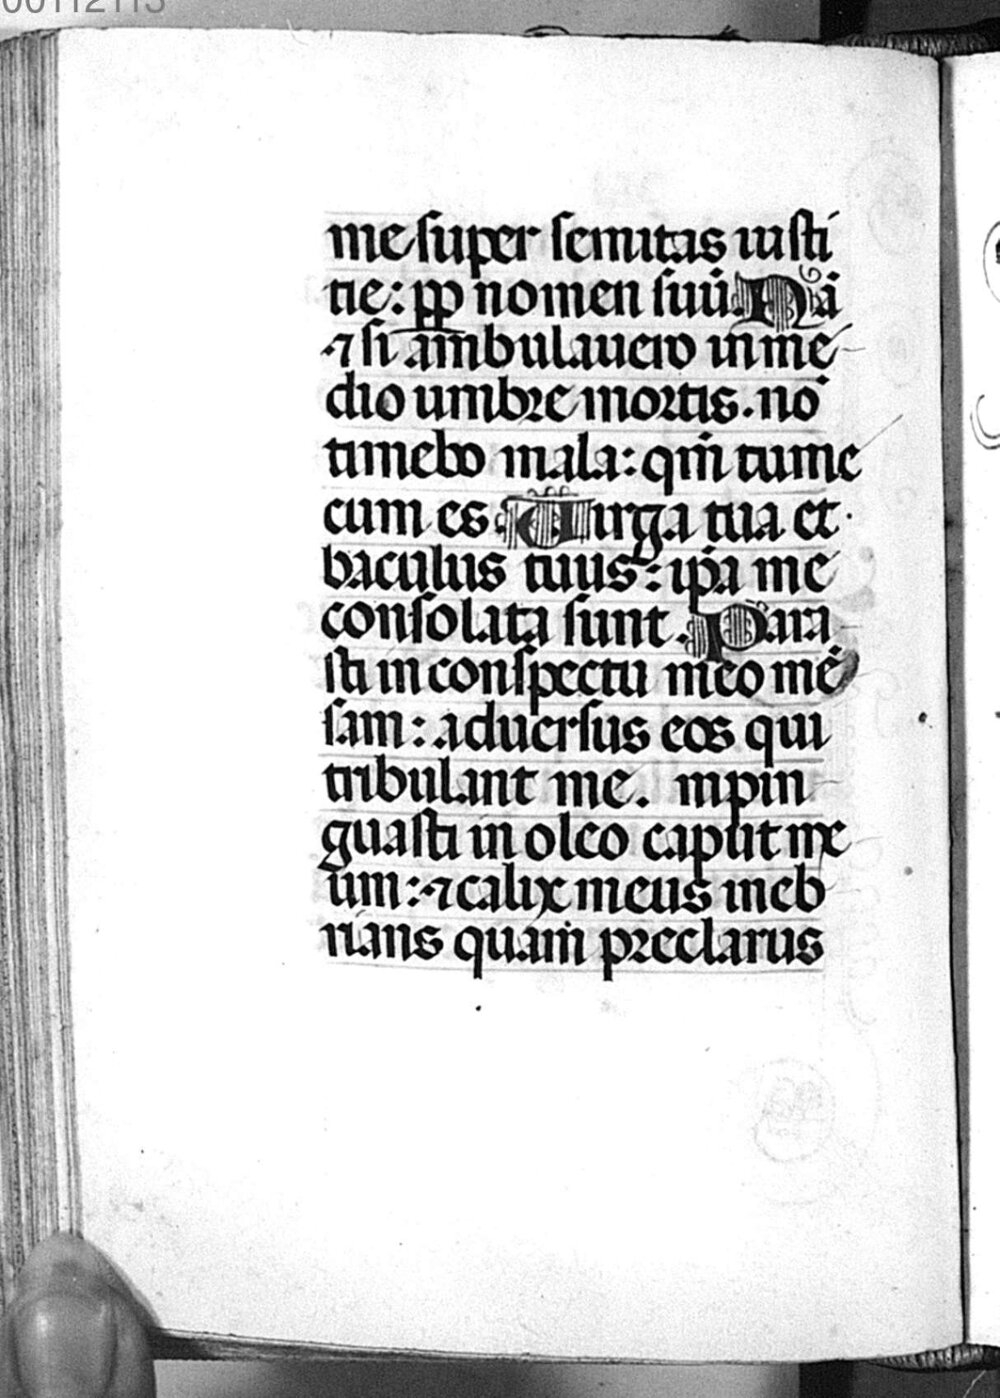 00112113
me super semitas iusti
tie: pp nomen suū. Nā
⁊ si ambulauero in me
dio umbre mortis. nō
timebo mala: qm̄ tu me
cum es. Uirga tua et
baculus tuus: ip̄a me
consolata sunt. Para
sti in conspectu meo mē
sam: aduersus eos qui
tribulant me. mpin
guasti in oleo caput me
um: ⁊ calix meus ineb
rians quam preclarus